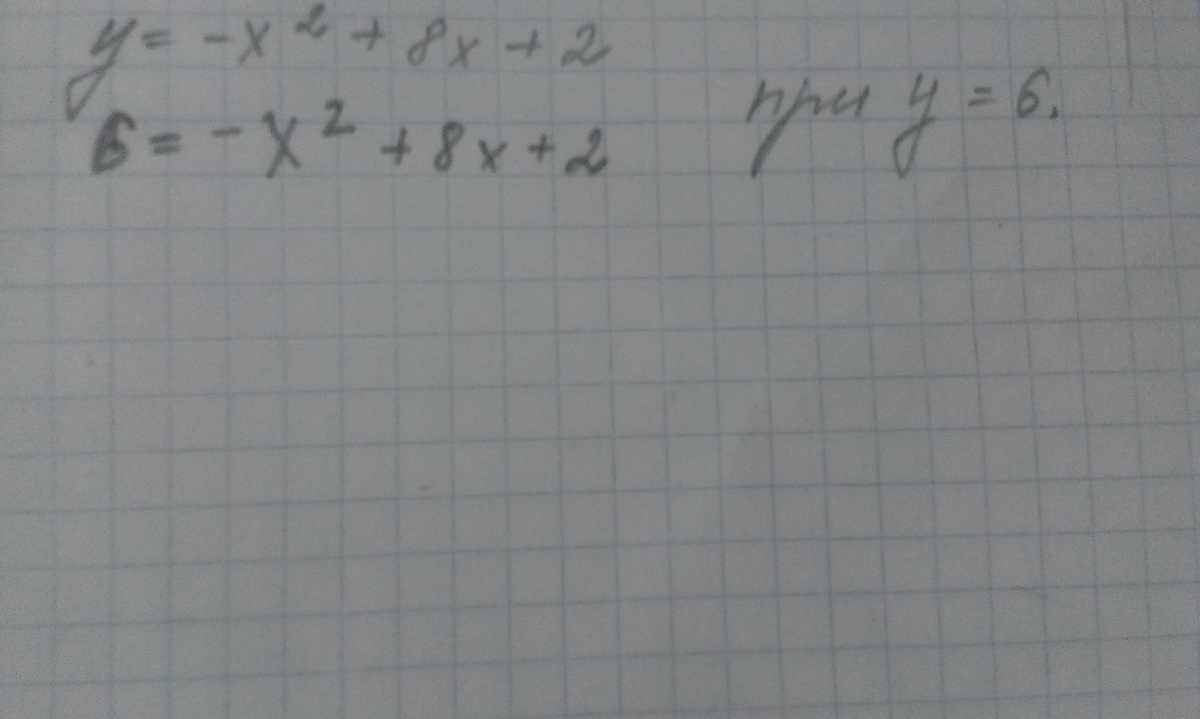 y = -x² + 8x + 2
6 = -x² + 8x + 2
при y = 6.